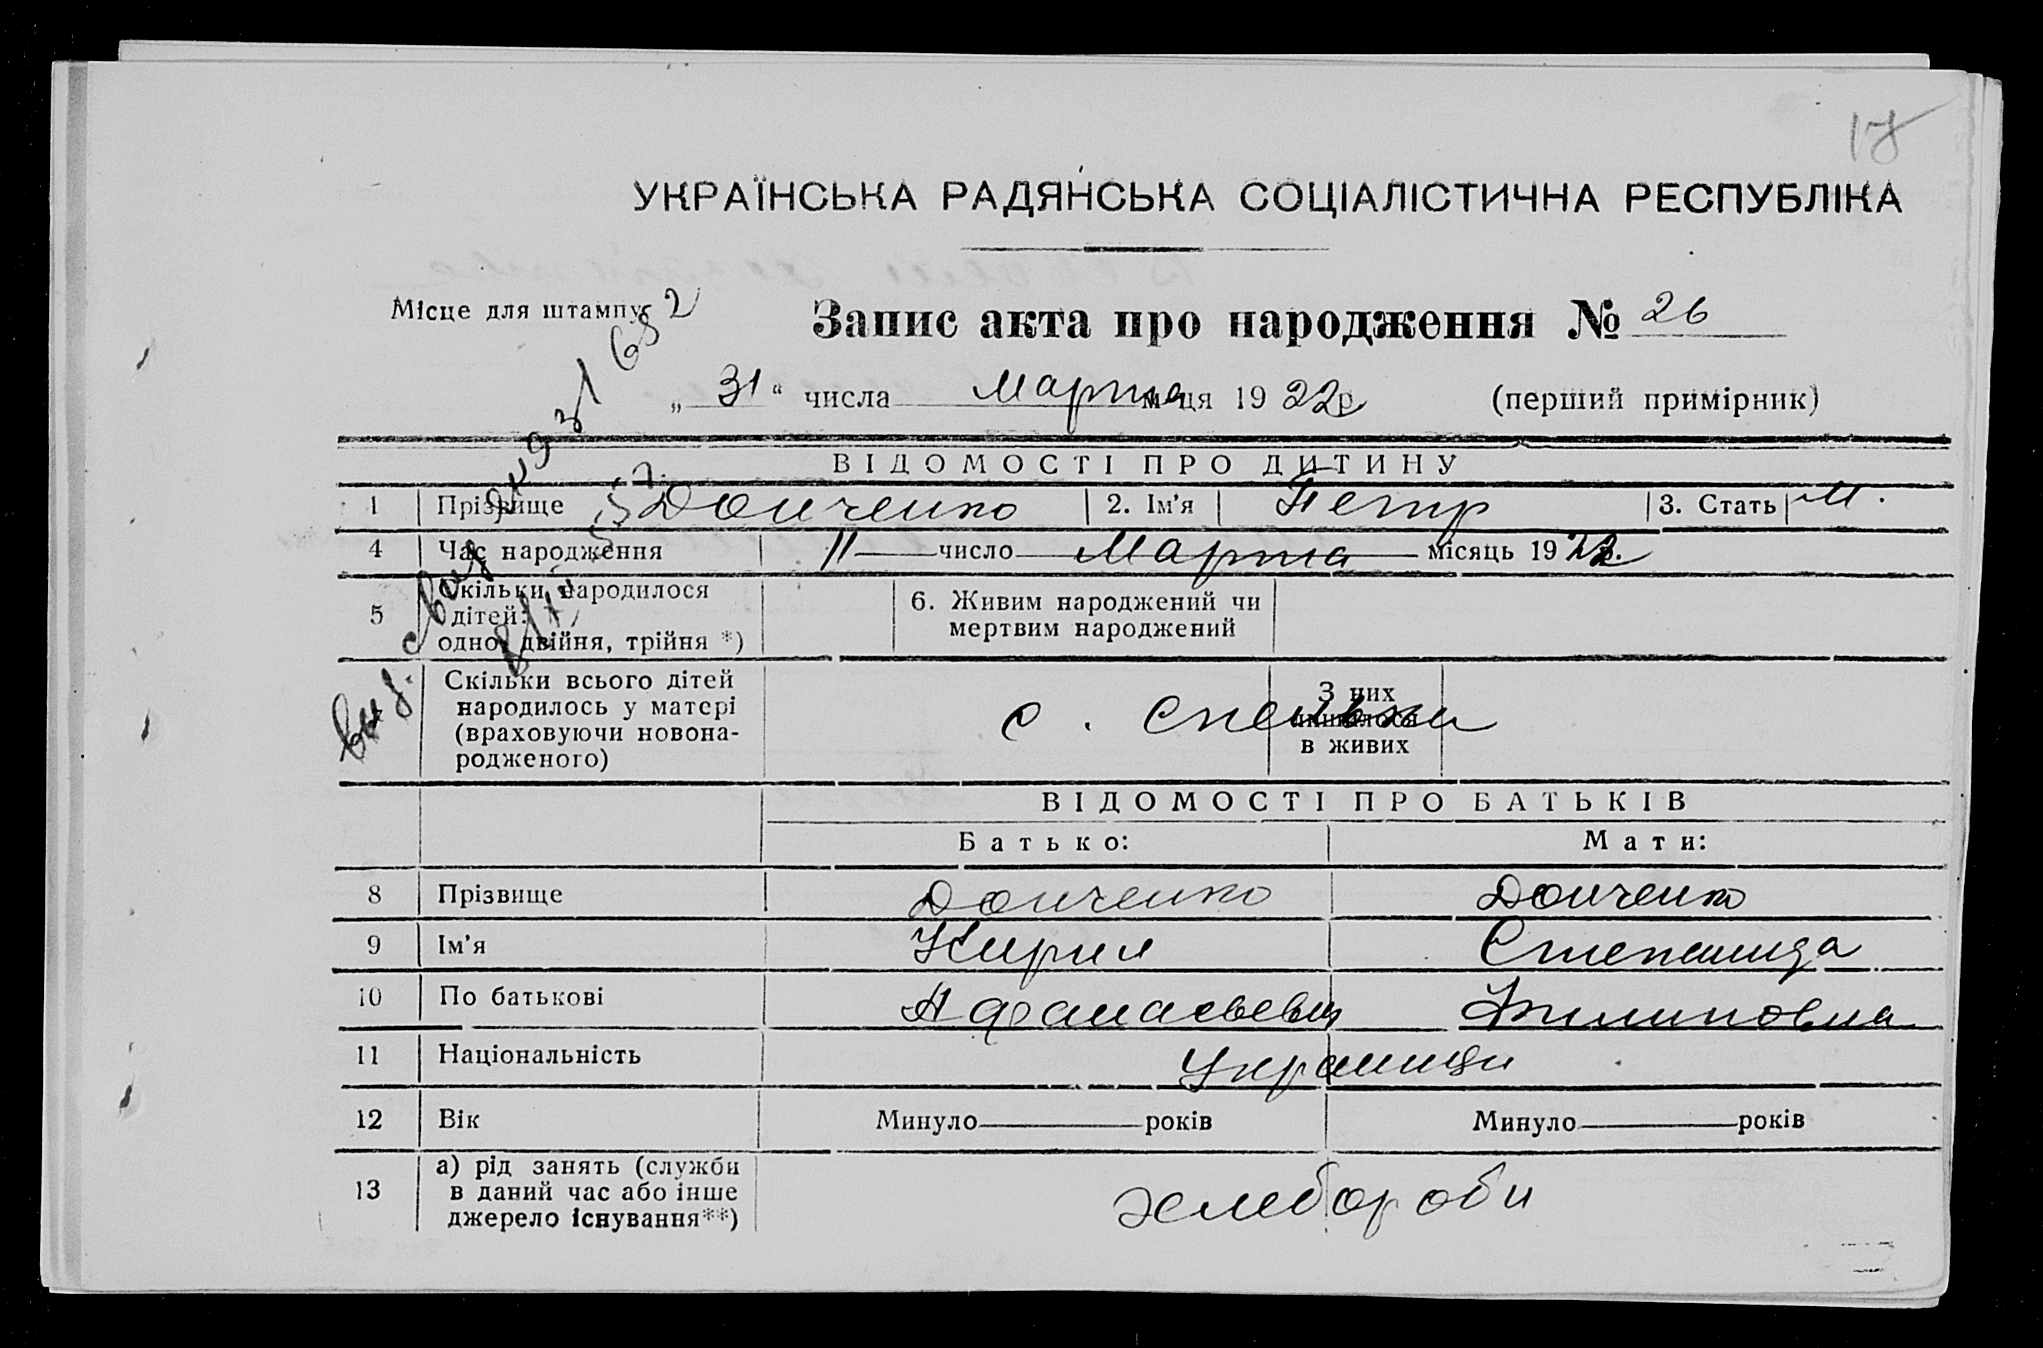 17
УКРАЇНСЬКА РАДЯНСЬКА СОЦІАЛІСТИЧНА РЕСПУБЛІКА
Місце для штампу
Запис акта про народження № 26
„ 31 “ числа Марта м-ця 19 22 р (перший примірник)
ВІДОМОСТІ ПРО ДИТИНУ
1 Прізвище Донченко 2. Ім’я Петр 3. Стать М.
4 Час народження 11 число Марта місяць 19 22 р.
5 Скільки народилося дітей: одно, двійня, трійня *) 6. Живим народжений чи мертвим народжений
Скільки всього дітей
народилось у матері
(враховуючи новона-
родженого)
З них
лишилося
в живих
с.
ВІДОМОСТІ ПРО БАТЬКІВ
Батько: Мати:
8 Прізвище Донченко Донченко
9 Ім’я Кирил Степанида
10 По батькові Афанасьевич Филиповна
11 Національність Украинци
12 Вік Минуло років Минуло років
13 а) рід занять (служби
в даний час або інше
джерело існування**)
хлебороби